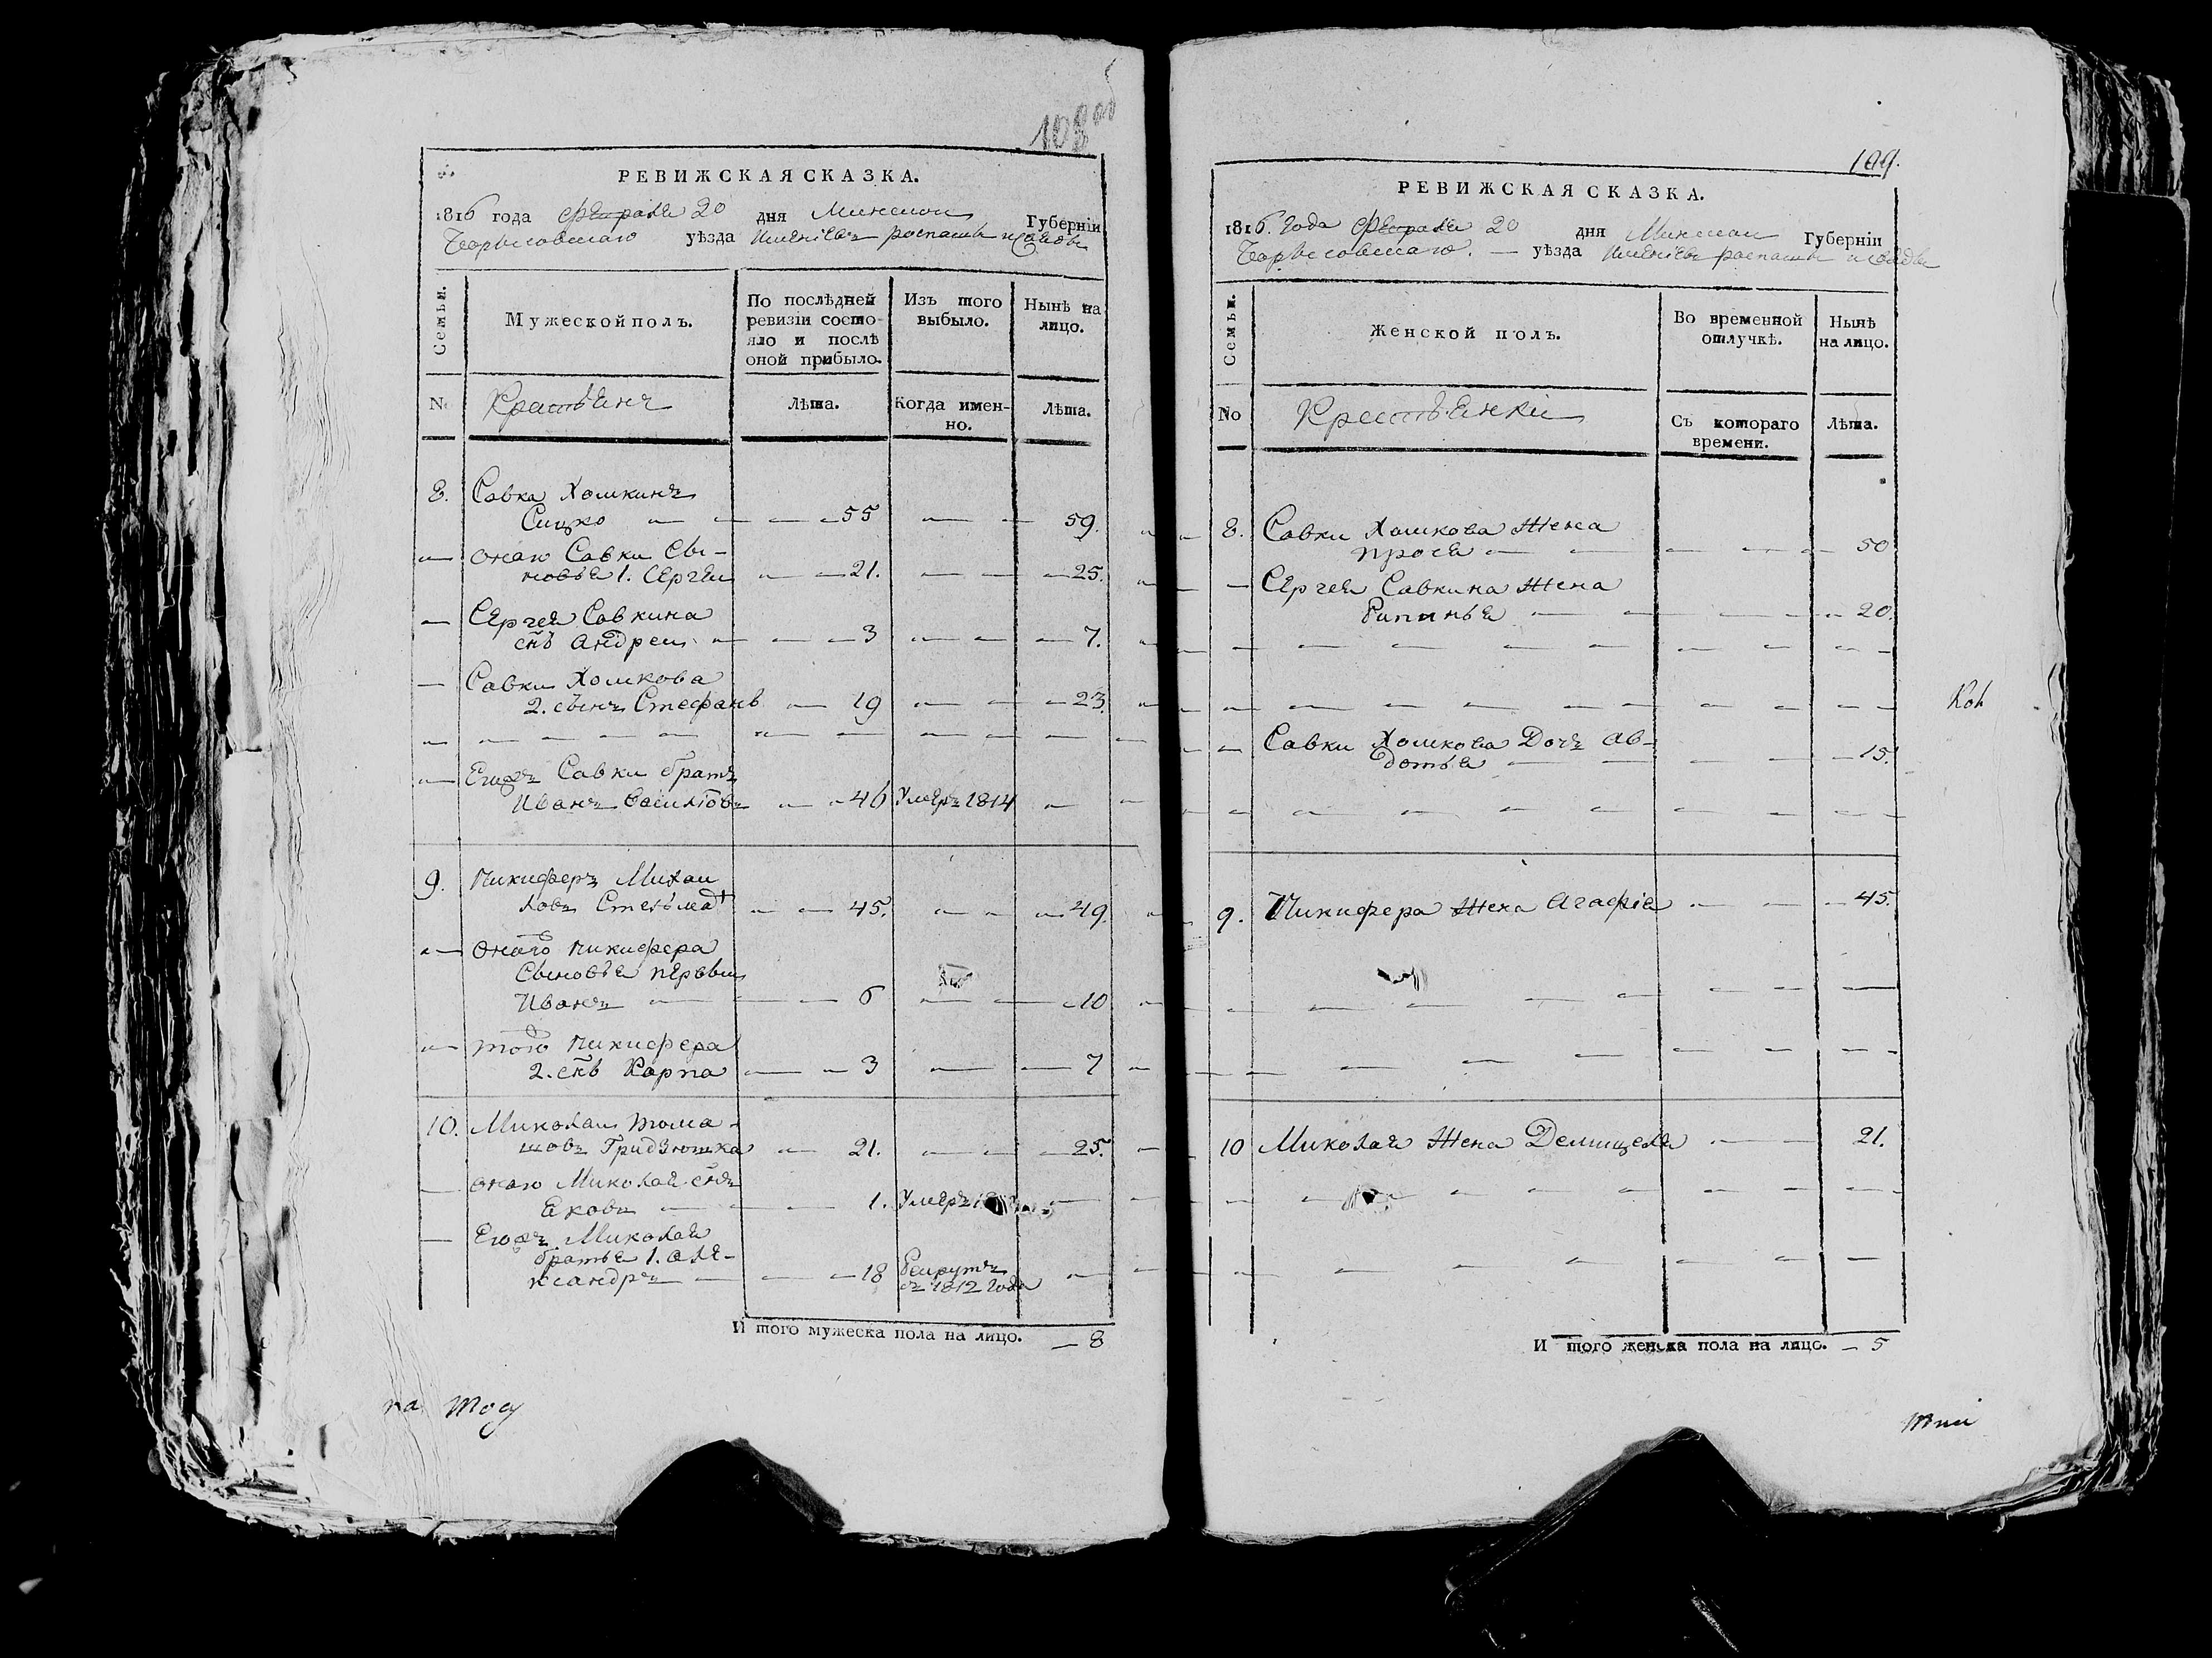 108 об
РЕВИЖСКАЯ СКАЗКА.
1816 года февраля 20 дня Минской Губерніи
Борисовскаго уѣзда имѣнія
Семьи.
Мужеской полъ.
По послѣдней ревизіи состояло и послѣ оной прибыло.
Изъ того выбыло.
Нынѣ на лицо.
№
Крестьянъ
Лѣта.
Когда именно.
Лѣта.
8. Савка Хомкинъ
Сицко — — — 55 — — 59.
— онаго Савки сы-
новья 1. Сергеи — 21. — — 25.
— Сергея Савкина
снъ Андреи — — 3 — — 7.
— Савки Хомкова
2. сынъ Стефанъ — 19 — — 23.
— Егожъ Савки братъ
Иванъ Василіовъ — 46 Умеръ 1814 —
9. Никиферъ Михаи
ловъ Стельмах — 45. — — 49.
— Онаго Никифера
Сыновья первыи
Иванъ — — — 6 — — 10
— того Никифера
2. снъ Карпа — — 3 — — 7
10. Миколаи Тома-
шовъ Гридзюшка — 21. — — 25.
— онаго Миколая снъ
Яковъ — — — 1. Умеръ
— Егожъ Миколая
братья 1. Але-
ксандръ — — — 18 Рекрутъ
съ 1812 года —
И того мужеска пола на лицо. — 8
на
109.
РЕВИЖСКАЯ СКАЗКА.
1816. Года февраля 20 дня Минской Губерніи
Борисовскаго. — уѣзда имѣнія
Семьи.
Женской полъ.
Во временной отлучкѣ.
Нынѣ на лицо.
No
Крестьянки
Съ котораго времени.
Лѣта.
8. Савки Хомкова Жена
Прося — — — — 50
— Сергея Савкина Жена
Рипинья — — — — 20.
— Савки Хомкова Дочъ Ав-
дотья — — — — 15.
9. Никифера Жена Агафія — — — 45.
10 Миколая Жена — — 21.
И того женска пола на лицо. — 5